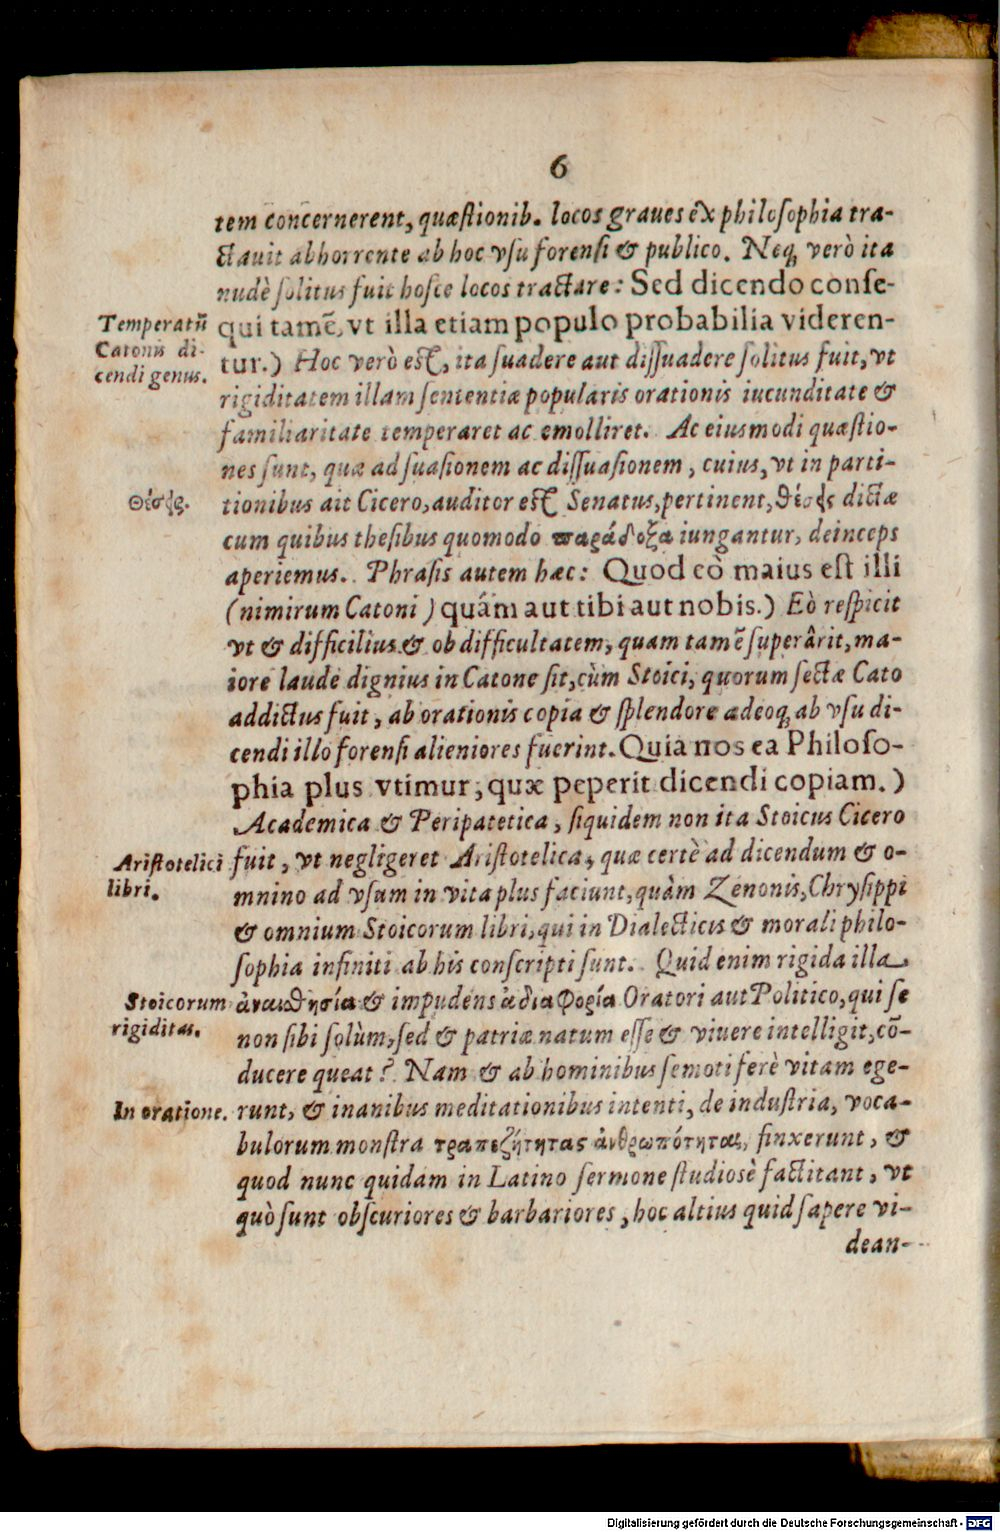 6
tem concernerent, quæſtionib. locos graues èx philoſophia tra-
ctauit abhorrente ab hoc vſu forenſi & publico. Neq; verò ita
nudè ſolitus fuit hoſce locos tractare: Sed dicendo conſe-
Temperatū
qui tamē, vt illa etiam populo probabilia videren-
Catonis di-
tur.) Hoc verò eſt, ita ſuadere aut diſſuadere ſolitus fuit, vt
cendi genus.
rigiditatem illam ſententiæ popularis orationis iucunditate &
familiaritate temperaret ac emolliret. Ac eiusmodi quæſtio-
nes ſunt, quæ ad ſuaſionem ac diſſuaſionem, cuius, vt in parti-
Θέσεις.
tionibus ait Cicero, auditor eſt Senatus, pertinent, θέσεις dictæ
cum quibus theſibus quomodo παράδοξα iungantur, deinceps
aperiemus. Phraſis autem hæc: Quod eò maius eſt illi
(nimirum Catoni) quám aut tibi aut nobis.) Eò reſpicit
vt & difficilius & ob difficultatem, quam tamē ſuperârit, ma-
iore laude dignius in Catone ſit, cùm Stoici, quorum ſectæ Cato
addictus fuit, ab orationis copia & ſplendore adeoq; ab vſu di-
cendi illo forenſi alieniores fuerint. Quia nos ea Philoſo-
phia plus vtimur, quæ peperit dicendi copiam.)
Academica & Peripatetica, ſiquidem non ita Stoicus Cicero
Ariſtotelici
fuit, vt negligeret Ariſtotelica, quæ certè ad dicendum & o-
libri.
mnino ad vſum in vita plus faciunt, quàm Zenonis, Chryſippi
& omnium Stoicorum libri, qui in Dialecticis & morali philo-
ſophia infiniti ab his conſcripti ſunt. Quid enim rigida illa
Stoicorum
ἀναισθησία & impudens ἀδιαφορία Oratori aut Politico, qui ſe
rigiditas.
non ſibi ſolùm, ſed & patriæ natum eſſe & viuere intelligit, cō-
ducere queat? Nam & ab hominibus ſemoti ferè vitam ege-
In oratione.
runt, & inanibus meditationibus intenti, de induſtria, voca-
bulorum monſtra τραπεζήτητας ἀνθρωπότητας, finxerunt, &
quod nunc quidam in Latino ſermone ſtudiosè factitant, vt
quò ſunt obſcuriores & barbariores, hoc altius quid ſapere vi-
dean-
Digitalisierung gefördert durch die Deutsche Forschungsgemeinschaft - DFG